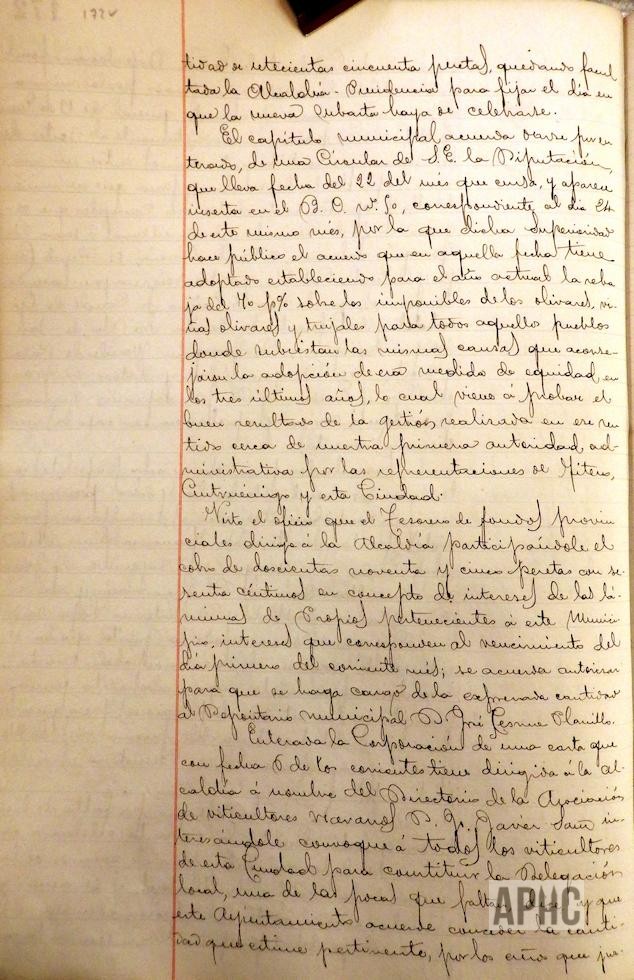 172v
tidad de setecientas cincuenta pesetas, quedando facul
tada la Alcaldía-Presidencia para fijar el día en
que la nueva subasta haya de celebrarse.
El capítulo municipal, acuerda darse por en
terado, de una Circular de S. E. la Diputación,
que lleva fecha del 22 del més que cursa, y aparece
inserta en el B. O. nº 50, correspondiente al día 24
de este mismo més, por la que dicha Superioridad
hace público el acuerdo que en aquella fecha tiene
adoptado estableciendo para el año actual la reba
ja del 40 p% sobre los imponibles de los olivares, vi
ñas olivares y trujales para todos aquellos pueblos
donde subsistan las mismas causas que aconse-
jaron la adopción de esa medida de equidad, en
los tres últimos años, lo cual viene á probar el
buen resultado de la gestión realizada en ese sen
tido cerca de nuestra primera autoridad ad-
ministrativa por las representaciones de Fitero,
Cintruenigo y esta Ciudad.
Visto el oficio que el Tesorero de fondos provin
ciales dirige á la Alcaldía participándole el
cobro de doscientas noventa y cinco pesetas con se-
senta céntimos en concepto de intereses de las lá-
minas de Propios pertenecientes á este Munici-
pio, intereses que corresponden al vencimiento del
día primero del corriente més; se acuerda autorizar
para que se haga cargo de la expresada cantidad
al Depositario municipal D. José Lesme Planillo.
Enterada la Corporación de una carta que
con fecha 6 de los corrientes tiene dirigida á la Al-
caldía á nombre del Directorio de la Asociación
de viticultores navarros D. Javier Sanz in-
teresándole convoque á todos los viticultores
de esta Ciudad para constituir la Delegación
local, una de las pocas que faltan, dice, y que
este Ayuntamiento acuerde conceder la canti-
dad que estime pertinente, por los años que juz-
APHC